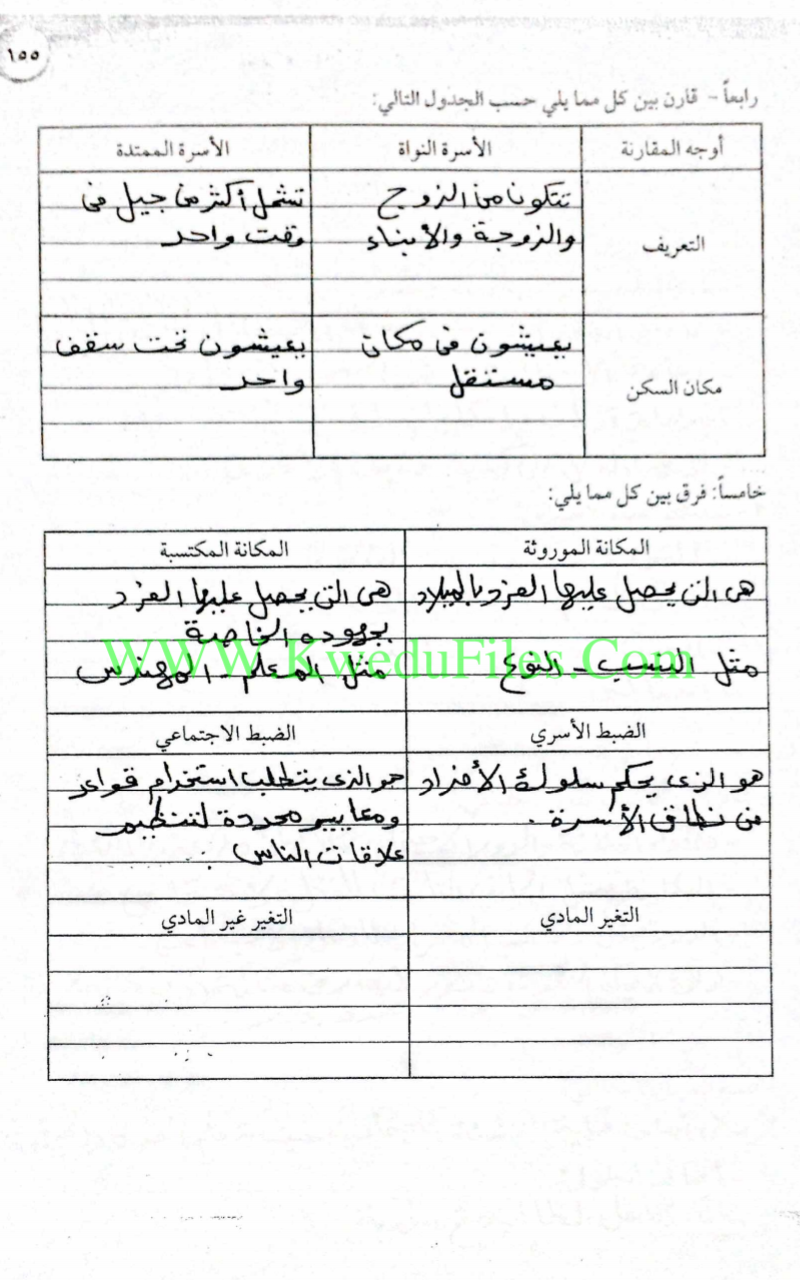 ١٥٥
رابعاً - قارن بين كل مما يلي حسب الجدول التالي:
أوجه المقارنة
الأسرة النواة
الأسرة الممتدة
التعريف
تتكون من الزوج
والزوجة والأبناء
تشمل أكثر من جيل فى
وقت واحد
مكان السكن
يعيشون فى مكان
مستقل
يعيشون تحت سقف
واحد
خامساً: فرق بين كل مما يلي:
المكانة الموروثة
المكانة المكتسبة
هى التى يحصل عليها الفرد بالميلاد
مثل النسب - النوع
هى التى يحصل عليها الفرد
بجهوده الخاصة
مثل المعلم - المهندس
WWW.KweduFiles.Com
الضبط الأسري
الضبط الاجتماعي
هو الذى يحكم سلوك الأفراد
فى نطاق الأسرة.
هو الذى يتطلب استخدام قواعد
ومعايير محددة لتنظيم
علاقات الناس
التغير المادي
التغير غير المادي